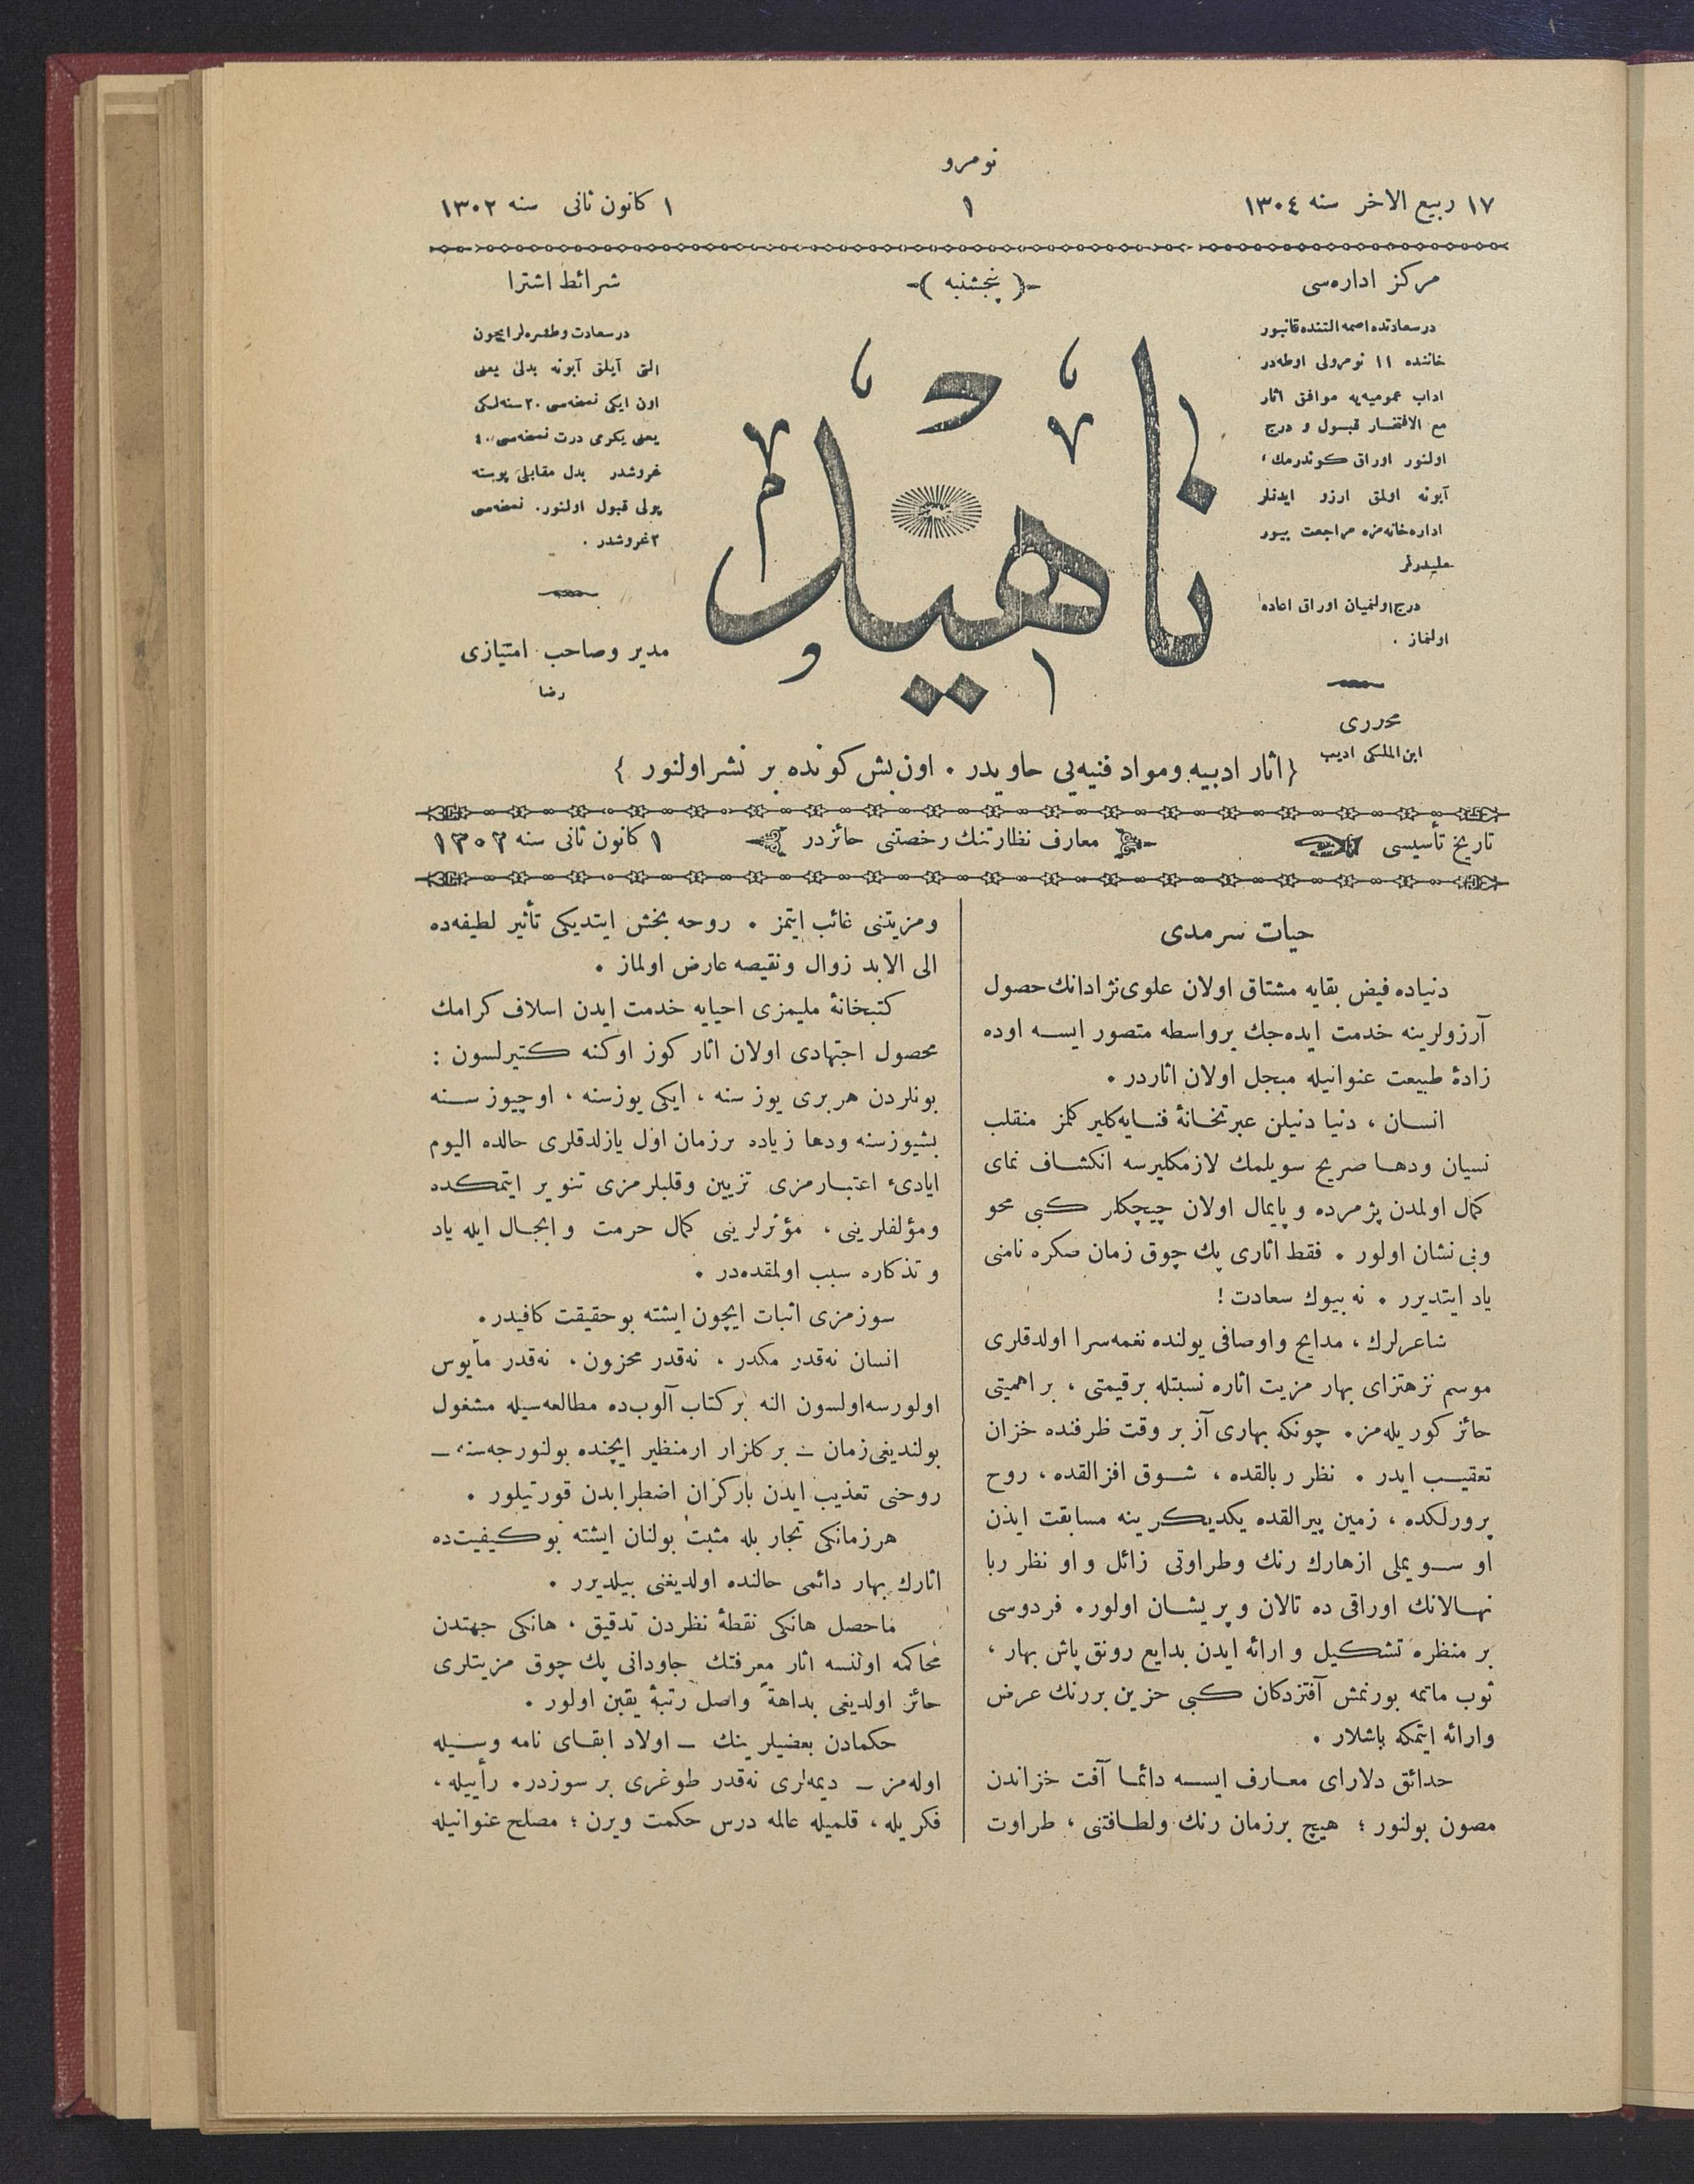 نومرو
١٧ ربيع الاخر سنه ١٣٠٤
١
١ كانون ثانى سنه ١٣٠٢
مركز اداره‌سى
درسعادتده اصمه التنده قانبور
خاننده ١١ نومرولى اوطه‌در
اداب عموميه‌يه موافق اثار
مع الافتخار قبول و درج
اولنور اوراق كوندرمك ،
آبونه اولمق ارزو ايدنلر
اداره‌خانه‌مزه مراجعت بيور
مليدرلر
درج اولنميان اوراق اعاده
اولنماز .
محررى
ابن الملكى اديب
-( پنجشنبه )-
ناهيد
شرائط اشترا
درسعادت وطشره‌لر ايچون
التى آيلق آبونه بدلى يعنى
اون ايكى نسخه‌سى ٢٠ سنه‌لكى
يعنى يكرمى درت نسخه‌سى ٤٠
غروشدر بدل مقابلى پوسته
پولى قبول اولنور . نسخه‌سى
٢ غروشدر .
مدير وصاحب امتيازى
رضا
{ اثار ادبيه ومواد فنيه‌يى حاويدر . اون بش كونده بر نشر اولنور }
تاريخ تأسيسى
معارف نظارتنك رخصتنى حائزدر
١ كانون ثانى سنه ١٣٠٢
حيات سرمدى
دنياده فيض بقايه مشتاق اولان علوى نژادانك حصول
آرزولرينه خدمت ايده‌جك برواسطه متصور ايسه اوده
زادهٔ طبيعت عنوانيله مبجل اولان اثاردر .
انسان ، دنيا دنيلن عبرتخانهٔ فنايه كلير كلمز منقلب
نسيان ودها صريح سويلمك لازمكليرسه انكشاف نماى
كمال اولمدن پژمرده و پايمال اولان چيچكلر كبى محو
وبى نشان اولور . فقط اثارى پك چوق زمان صكره نامنى
ياد ايتديرر . نه بيوك سعادت !
شاعرلرك ، مدايح واوصافى يولنده نغمه‌سرا اولدقلرى
موسم نزهتزاى بهار مزيت اثاره نسبتله برقيمتى ، براهميتى
حائز كوريله‌مز . چونكه بهارى آز بر وقت ظرفنده خزان
تعقيب ايدر . نظر ربالقده ، شوق افزالقده ، روح
پرورلكده ، زمين پيرالقده يكديكرينه مسابقت ايدن
او سويملى ازهارك رنك وطراوتى زائل و او نظر ربا
نهالانك اوراقى ده تالان و پريشان اولور . فردوسى
بر منظره تشكيل و ارائه ايدن بدايع رونق پاش بهار ،
ثوب ماتمه بورنمش آفتزدكان كبى حزين بررنك عرض
وارائه ايتمكه باشلار .
حدائق دلاراى معارف ايسه دائما آفت خزاندن
مصون بولنور ؛ هيچ برزمان رنك ولطافتنى ، طراوت
ومزيتنى غائب ايتمز . روحه بخش ايتديكى تأثير لطيفه‌ده
الى الابد زوال ونقيصه عارض اولماز .
كتبخانهٔ مليمزى احيايه خدمت ايدن اسلاف كرامك
محصول اجتهادى اولان اثار كوز اوكنه كتيرلسون :
بونلردن هربرى يوز سنه ، ايكى يوزسنه ، اوچيوز سنه
بشيوزسنه ودها زياده برزمان اول يازلدقلرى حالده اليوم
ايادىء اعتبارمزى تزيين وقلبلرمزى تنوير ايتمكده
ومؤلفلرينى ، مؤثرلرينى كمال حرمت و ابجال ايله ياد
و تذكاره سبب اولمقده‌در .
سوزمزى اثبات ايچون ايشته بوحقيقت كافيدر .
انسان نه‌قدر مكدر ، نه‌قدر محزون ، نه‌قدر مأيوس
اولورسه‌اولسون النه بر كتاب آلوب‌ده مطالعه‌سيله مشغول
بولنديغى زمان ــ بر كلزار ارمنظير ايچنده بولنورجه‌سنه ــ
روحنى تعذيب ايدن باركران اضطرابدن قورتيلور .
هرزمانكى تجاربله مثبت بولنان ايشته بو كيفيت‌ده
اثارك بهار دائمى حالنده اولديغنى بيلديرر .
ماحصل هانكى نقطهٔ نظردن تدقيق ، هانكى جهتدن
محاكمه اولنسه اثار معرفتك جاودانى پك چوق مزيتلرى
حائز اولديغى بداهةً واصل رتبهٔ يقين اولور .
حكمادن بعضيلرينك ــ اولاد ابقاى نامه وسيله
اوله‌مز ــ ديمه‌لرى نه‌قدر طوغرى بر سوزدر . رأييله ،
فكريله ، قلميله عالمه درس حكمت ويرن ؛ مصلح عنوانيله